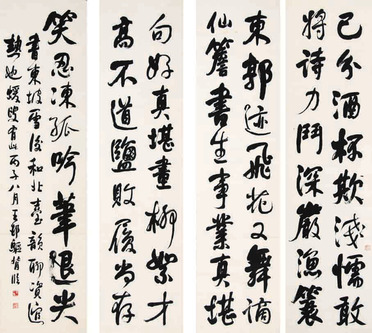 已分酒杯欺淺懦敢
將詩力鬥深嚴漁蓑
東郭迹飛花又舞謫
仙簷書生事業真堪
句好真堪畫柳絮才
高不道鹽敗履尚存
笑忍凍孤吟筆退尖
書東坡雪後和北臺韻聊資逭
熱也 丙子八月王